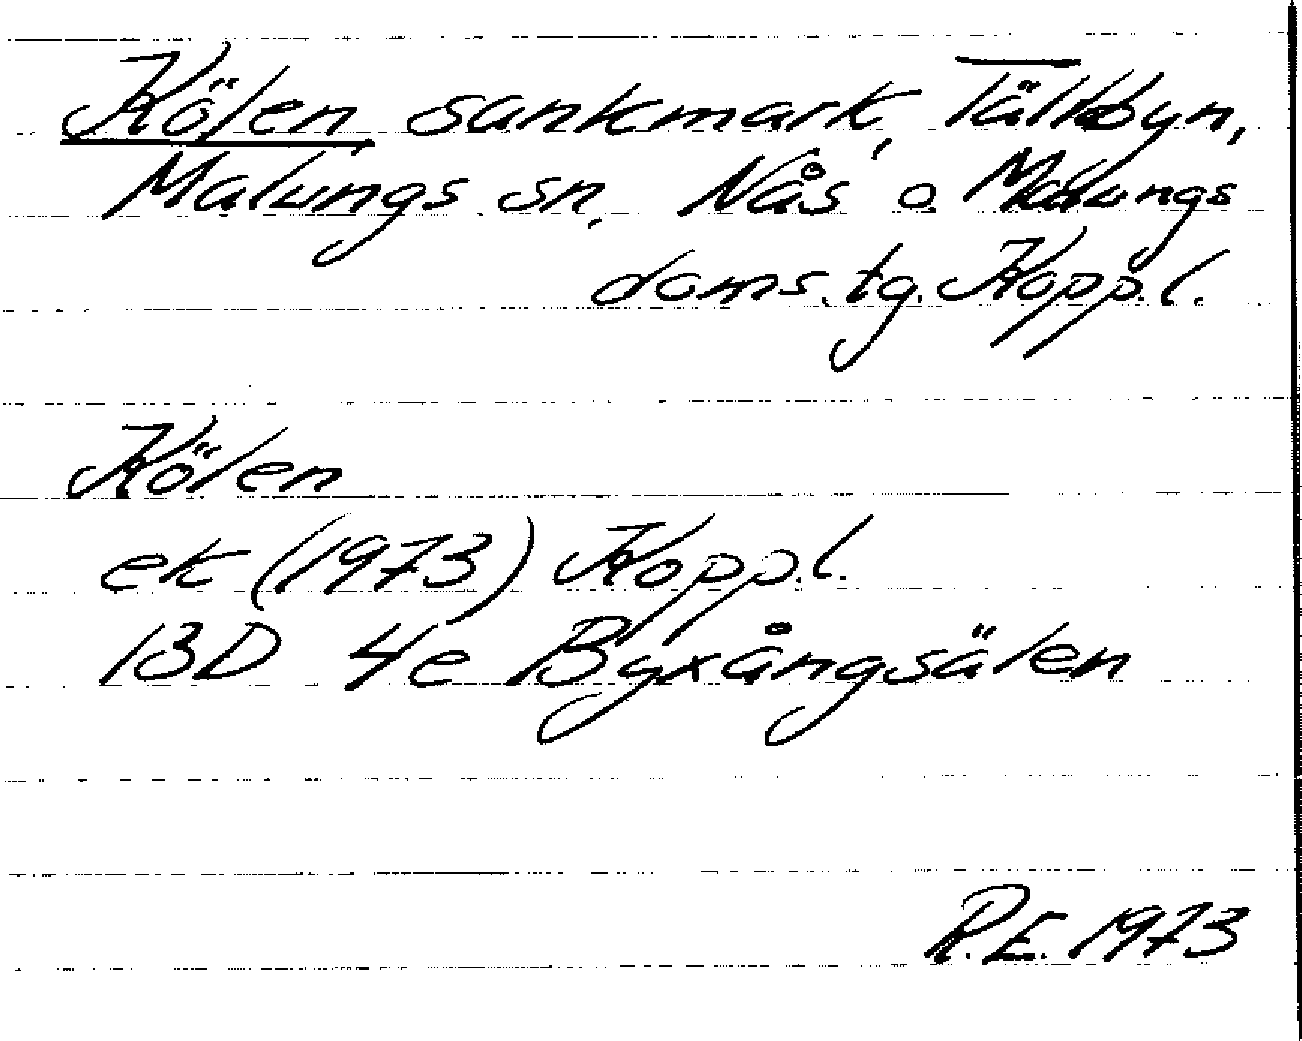 Kölen, sankmark, Tällbyn,
Malungs sn, Nås o Malungs
doms.tg. Koppl.
Kölen
ek (1973) Koppl.
13D 4e Byxångsälen
R.E. 1973